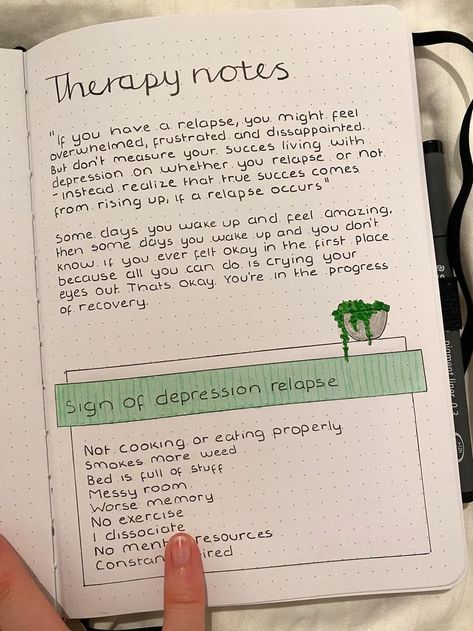 Therapy notes
"If you have a relapse, you might feel
overwhelmed, frustrated and dissappointed.
But don't measure your succes living with
depression on whether you relapse or not
- instead realize that true succes comes
from rising up, if a relapse occurs"
Some days you wake up and feel amazing,
then some days you wake up and you don't
know if you ever felt okay in the first place
because all you can do is crying your
eyes out. Thats okay. You're in the progress
of recovery.
Sign of depression relapse
Not cooking or eating properly
Smokes more weed
Bed is full of stuff
Messy room
Worse memory
No exercise
I dissociate
No resources
pigment liner 0.3